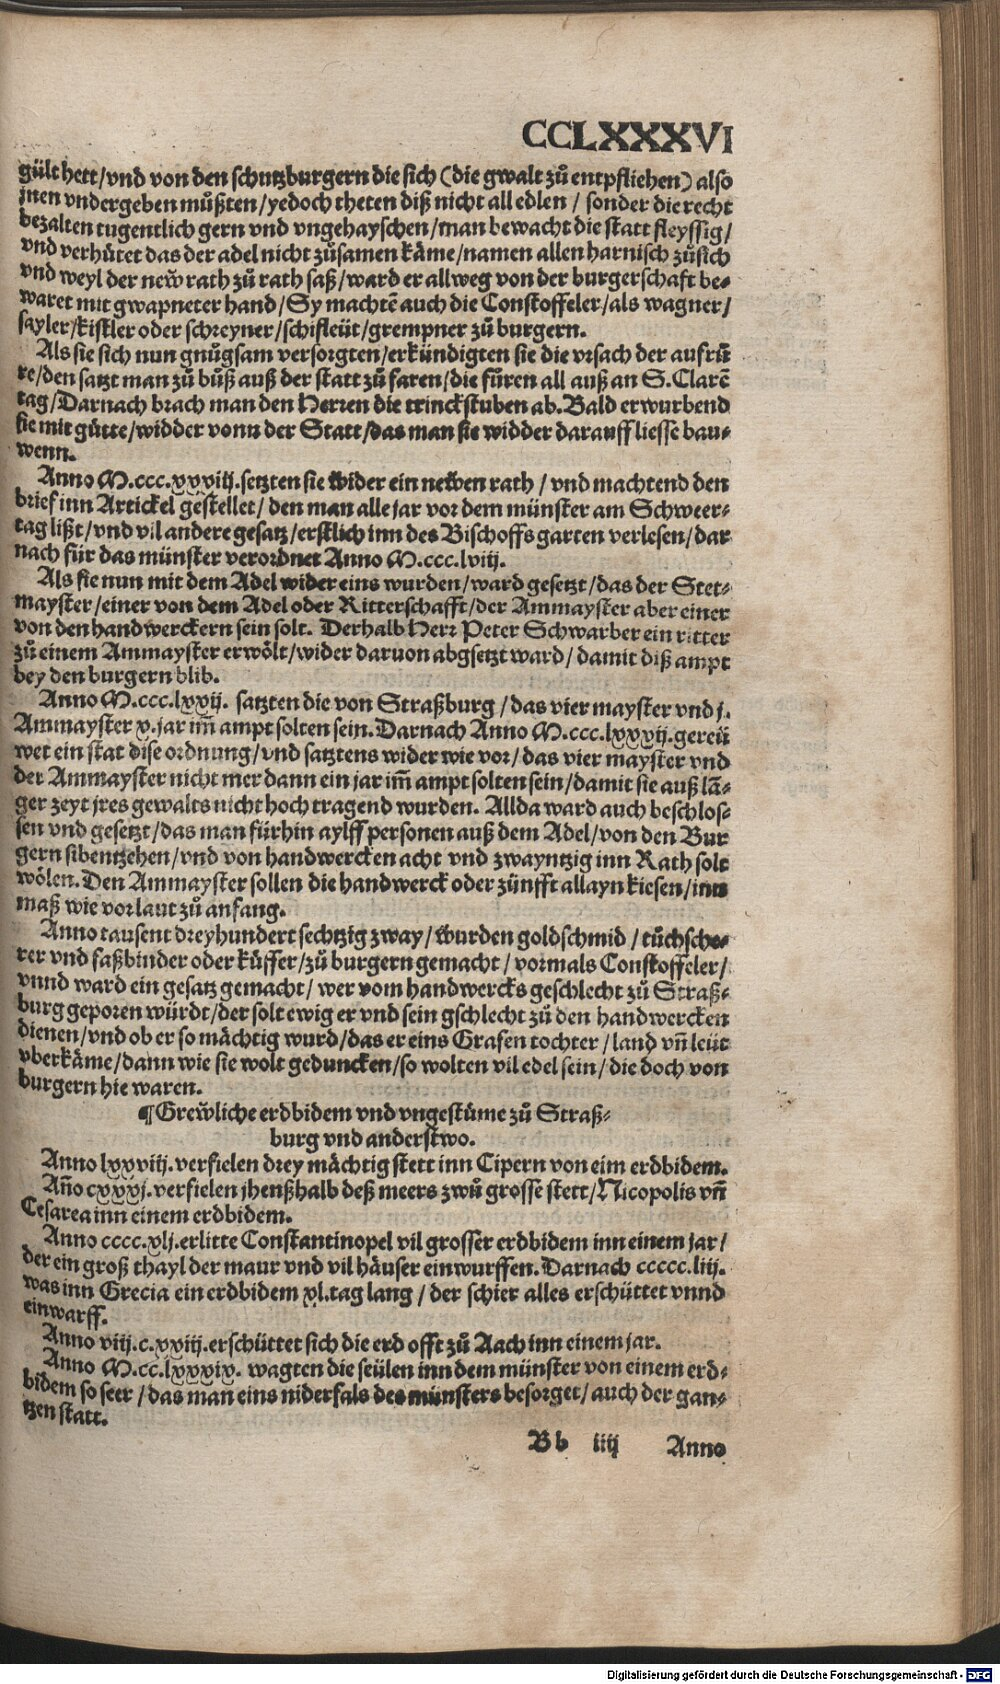 CCLXXXVI
gült hett/vnd von den schutzburgern die sich (die gwalt zů entpfliehen) also
jnen vndergeben můßten/yedoch theten diß nicht all edlen / sonder die recht
bezalten tugentlich gern vnd vngehayschen/man bewacht die statt fleyssig/
vnd verhütet das der adel nicht zůsamen käme/namen allen harnisch zůsich
vnd weyl der new̌ rath zů rath saß/ward er allweg von der burgerschaft be⸗
waret mit gwapneter hand/Sy machtē auch die Constoffeler/als wagner/
sayler/kistler oder schreyner/schifleüt/grempner zů burgern.
Als sie sich nun gnůgsam versorgten/erkündigten sie die vrsach der aufrů
re/den satzt man zů bůß auß der statt zů faren/die fůren all auß an S.Clarē
tag/Darnach brach man den Herren die trinckstuben ab.Bald erwurbend
sie mit gütte/widder vonn der Statt/das man sie widder darauff liesse bau⸗
wenn.
Anno M.ccc.xxxiiij.setzten sie wider ein newen rath / vnd machtend den
brief inn Artickel gestellet/den man alle jar vor dem münster am Schweer⸗
tag lißt/vnd vil andere gesatz/erstlich inn des Bischoffs garten verlesen/dar
nach für das münster verordnet Anno M.ccc.lviij.
Als sie nun mit dem Adel wider eins wurden/ward gesetzt/das der Stet⸗
mayster/einer von dem Adel oder Ritterschafft/der Ammayster aber einer
von den handwerckern sein solt. Derhalb Herr Peter Schwarber ein ritter
zů einem Ammayster erwölt/wider daruon abgsetzt ward/damit diß ampt
bey den burgern blib.
Anno M.ccc.lxxij. satzten die von Straßburg/das vier mayster vnd j.
Ammayster x.jar im̄ ampt solten sein.Darnach Anno M.ccc.lxxxij.gereü
wet ein stat dise ordnung/vnd satztens wider wie vor/das vier mayster vnd
der Ammayster nicht mer dann ein jar im̄ ampt solten sein/damit sie auß lā⸗
ger zeyt jres gewalts nicht hoch tragend wurden. Allda ward auch beschlos⸗
sen vnd gesetzt/das man fürhin aylff personen auß dem Adel/von den Bur
gern sibentzehen/vnd von handwercken acht vnd zwayntzig inn Rath solt
wölen.Den Ammayster sollen die handwerck oder zünfft allayn kiesen/inn
maß wie vorlaut zů anfang.
Anno tausent dreyhundert sechtzig zway/wurden goldschmid / tůchsche⸗
rer vnd faßbinder oder küffer/zů burgern gemacht/ vormals Constoffeler/
vnnd ward ein gesatz gemacht/ wer vom handwercks geschlecht zů Straß⸗
burg geporen würdt/der solt ewig er vnd sein gschlecht zů den handwercken
dienen/vnd ob er so mächtig wurd/das er eins Grafen tochter/land vn̄ leüt
vberkäme/dann wie sie wolt geduncken/so wolten vil edel sein/die doch von
burgern hie waren.
¶Grew̌liche erdbidem vnd vngestüme zů Straß⸗
burg vnd anderstwo.
Anno lxxviij.verfielen drey mächtig stett inn Cipern von eim erdbidem.
Añno cxxxj.verfielen jhenßhalb deß meers zwů grosse stett/Nicopolis vn̄
Cesarea inn einem erdbidem.
Anno cccc.xlj.erlitte Constantinopel vil grosser erdbidem inn einem jar/
der ein groß thayl der maur vnd vil häuser einwurffen.Darnach ccccc.liij.
was inn Grecia ein erdbidem xl.tag lang / der schier alles erschüttet vnnd
einwarff.
Anno viij.c.xxiij.erschüttet sich die erd offt zů Aach inn einem jar.
Anno M.cc.lxxxix. wagten die seülen inn dem münster von einem erd⸗
bidem so seer/das man eins niderfals des münsters besorget/auch der gan⸗
tzen statt.
Bb iiij Anno
Digitalisierung gefördert durch die Deutsche Forschungsgemeinschaft - DFG